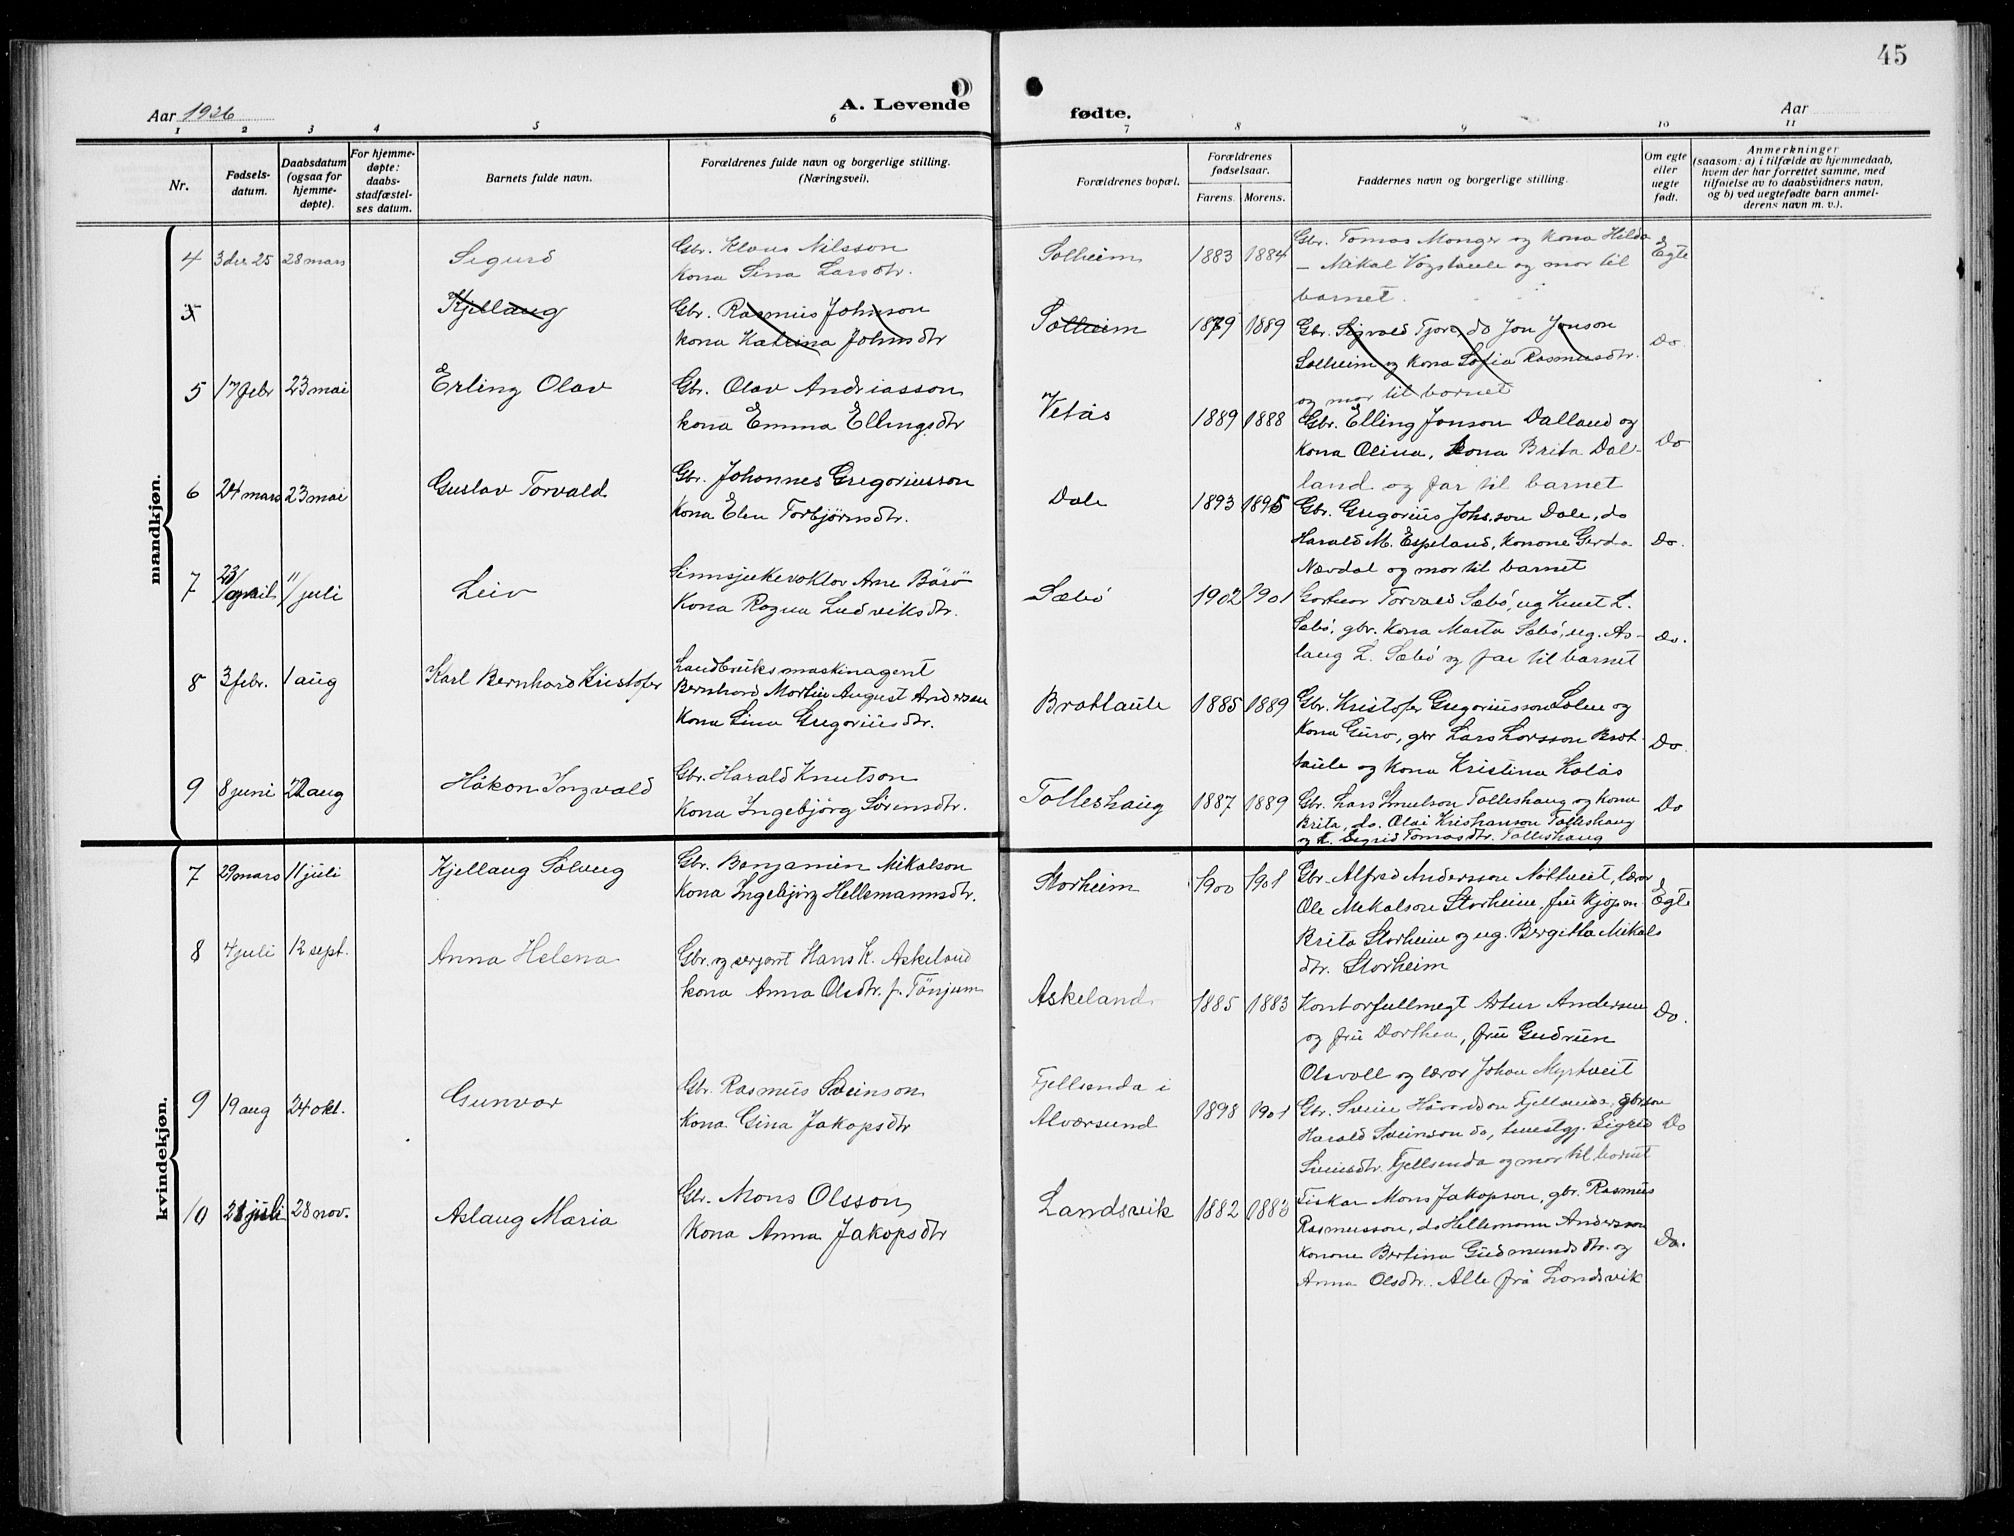 45
Aar 1926
A. Levende
fødte.
Aar
1 2 3 4 5 6 7 8 9 10 11
Nr.
Fødsels-
datum.
Daabsdatum
(ogsaa for
hjemme-
døpte).
For hjemme-
døpte:
daabs-
stadfæstel-
ses datum.
Barnets fulde navn.
Forældrenes fulde navn og borgerlige stilling.
(Næringsvei).
Forældrenes bopæl.
Forældrenes
fødselsaar.
Farens. Morens.
Faddernes navn og borgerlige stilling.
Om egte
eller
uegte
født.
Anmerkninger
(saasom: a) i tilfælde av hjemmedaab,
hvem der har forrettet samme, med
tilføielse av to daabsvidners navn,
og b) ved uegtefødte barn anmel-
derens navn m. v.).
mandkjøn.
4 3 des. 25 28 mars Sigurd
Gbr. Klaus Nilsson
Kona Sina Larsdtr.
Solheim 1883 1884
Gbr. Tomas Monger og kona Hilda
– Mikal Vogstaule og mor til
barnet.
Egte
5 Kjellaug
Gbr. Rasmus Johnson
kona Katrina Johnsdtr
Solheim 1879 1889
Gbr. Sigvald Fjore, do Jon Jonson
Solheim og kona Sofia Rasmusdtr.
og mor til barnet
Do.
5 17 febr 23 mai Erling Olav
Gbr. Olav Andriasson
kona Emma Ellingsdtr
Vetås 1889 1888
Gbr. Elling Jonson Dalland og
Kona Olina, kona Brita Dal-
land og far til barnet
Do
6 24 mars 23 mai Gustav Torvald
Gbr. Johannes Gregoriusson
Kona Elen Torbjørnsdtr.
Dale 1893 1895
Gbr. Gregorius Johs.son Dale, do
Harald M. Espeland, Konone Gerda
Nævdal og mor til barnet
Do.
7 23/april 11/juli Leiv
Sinnsjukevoktar Ane Börö
Kona Ragna Ludviksdtr.
Sæbö 1902 1901
Torvald Sæbö, ug Knut L.
Sæbö, gbr. Kona Marta Sæbö, ug. As-
laug L. Sæbö og far til barnet
Do.
8 3 febr. 1 aug Karl Bernhard Kristofer
Landbruksmaskinagent
Bernhard Martin August Andersen
Kona Lina Gregoriusdtr.
Brottaule 1885 1889
Gbr. Kristofer Gregoriusson
og
Kona Guro, gbr Lars Larsson Brot-
taule og kona Kristina Kolås
Do.
9 8 juni 22 aug Håkon Ingvald
Gbr. Harald Knutson
Kona Ingebjörg Sörensdtr.
Tolleshaug 1887 1889
Gbr. Lars Knutson Tolleshaug og kona
Brita, do. Olai Kristianson Tolleshaug
Sigrid Tomasdtr. Tolleshaug
Do
kvindekjøn.
7 29 mars 11 juli Kjellaug Solveug
Gbr. Benjamin Mikalson
Kona Ingebjörg Hellemannsdtr.
Storheim 1900 1901
Gbr. Alfred Andersson Nöttveit, lærar
Ole Mikalson Storheim, fru kjöpm
Brita Storheim og ug. Bergitta Mikals
dtr. Storheim
Egte
8 4 juli 12 sept. Anna Helena
Gbr. og serjant Hans K. Askeland
kona Anna Olsdtr. f. Tönjum
Askeland 1885 1883
Kontorfullmegt Artur Andersen
og fru Dorthea, fru Gudrun
Olsvoll og lærar Johan Myrtveit
Do.
9 19 aug 24 okt. Gunvor
Gbr. Rasmus Sveinson
Kona Gina Jakopsdtr
Fjellsenda i
Alværsund
1898 1901
Gbr. Svein Håvardson Fjellsenda, gbrson
Harald Sveinson do, Sigrid
Sveinsdtr. Fjellsenda og mor til barnet
Do
10 21 juli 28 nov. Aslaug Maria
Gbr. Mons Olsson
Kona Anna Jakopsdtr
Landsvik 1882 1883
Fiskar Mons Jakopson, gbr. Rasmus
Rasmusson, do Hellemann Andersson
Konone Bertina Gudmundsdtr. og
Anna Olsdtr. Alle frå Landsvik
Do.